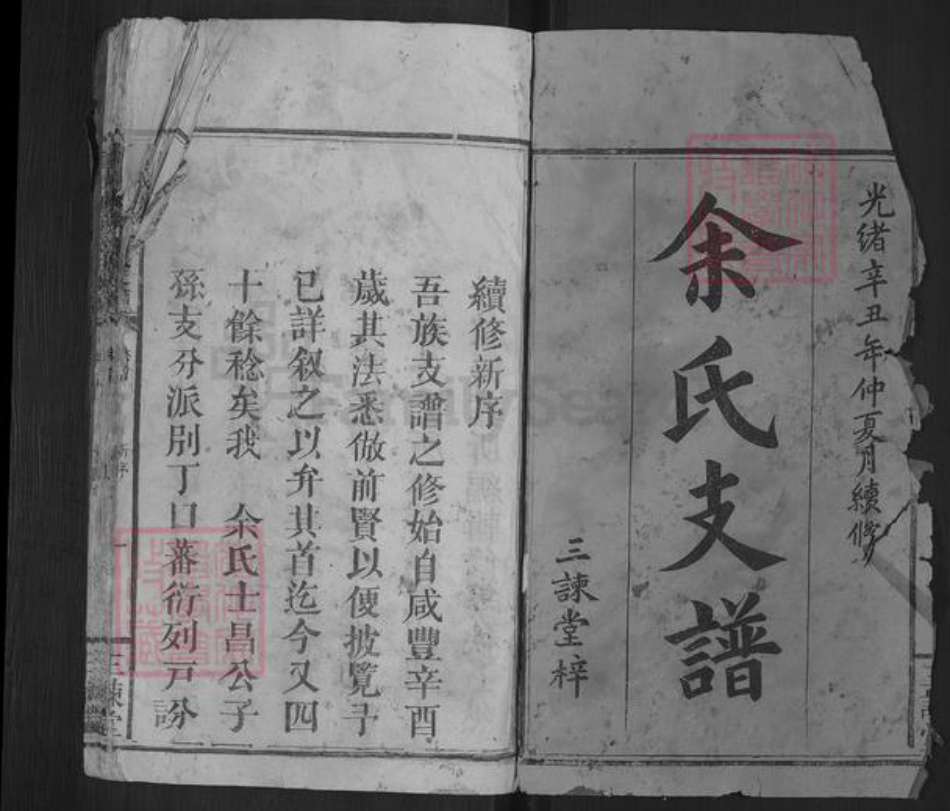 光緒辛丑年仲夏月續修
余氏支譜
三諫堂梓
續修新序
吾族支譜之修始自咸豐辛酉
歲其法悉倣前賢以便披覽予
已詳叙之以弁其首迄今又四
十餘稔矣我 余氏士昌公子
孫支分派別丁口蕃衍列戸